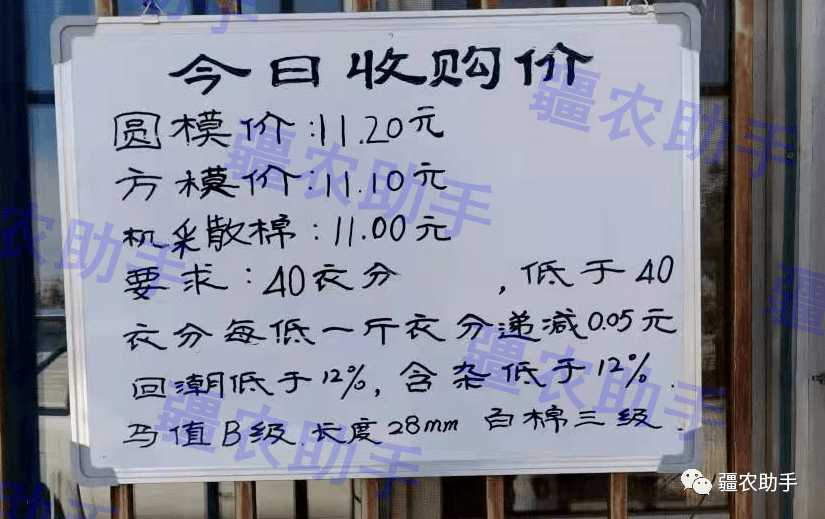 今日收购价
圆模价:11.20元
方模价:11.10元
机采散棉:11.00元
要求:40衣分 ,低于40
衣分每低一斤衣分递减0.05元
回潮低于12%,含杂低于12%.
马值B级.长度28mm 白棉三级.
疆农助手
疆农助手
农助手
疆农助手
疆农助手
疆农助手